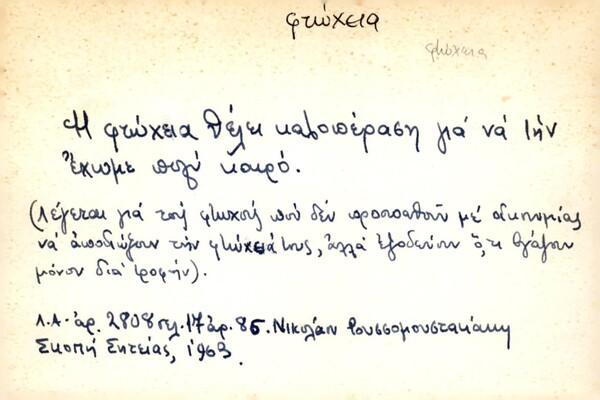 φτώχεια
φτώχεια
Ἡ φτώχεια θέλει καλοπέραση γιά νά τήν
ἔχωμε πολύ καιρό.
(Λέγεται γιά τούς φτωχούς πού δέν προσπαθοῦν μέ οἰκονομίας
νά ἀποδιώξουν τήν φτώχειά τους, ἀλλά ἐξοδεύουν ὅ,τι βγάζουν
μόνον διά τροφήν).
Λ.Α. ἀρ. 2808 σελ. 17 ἀρ. 85. Νικολάου Ρουσσομουστακάκη
Σκοπή Σητείας, 1963.